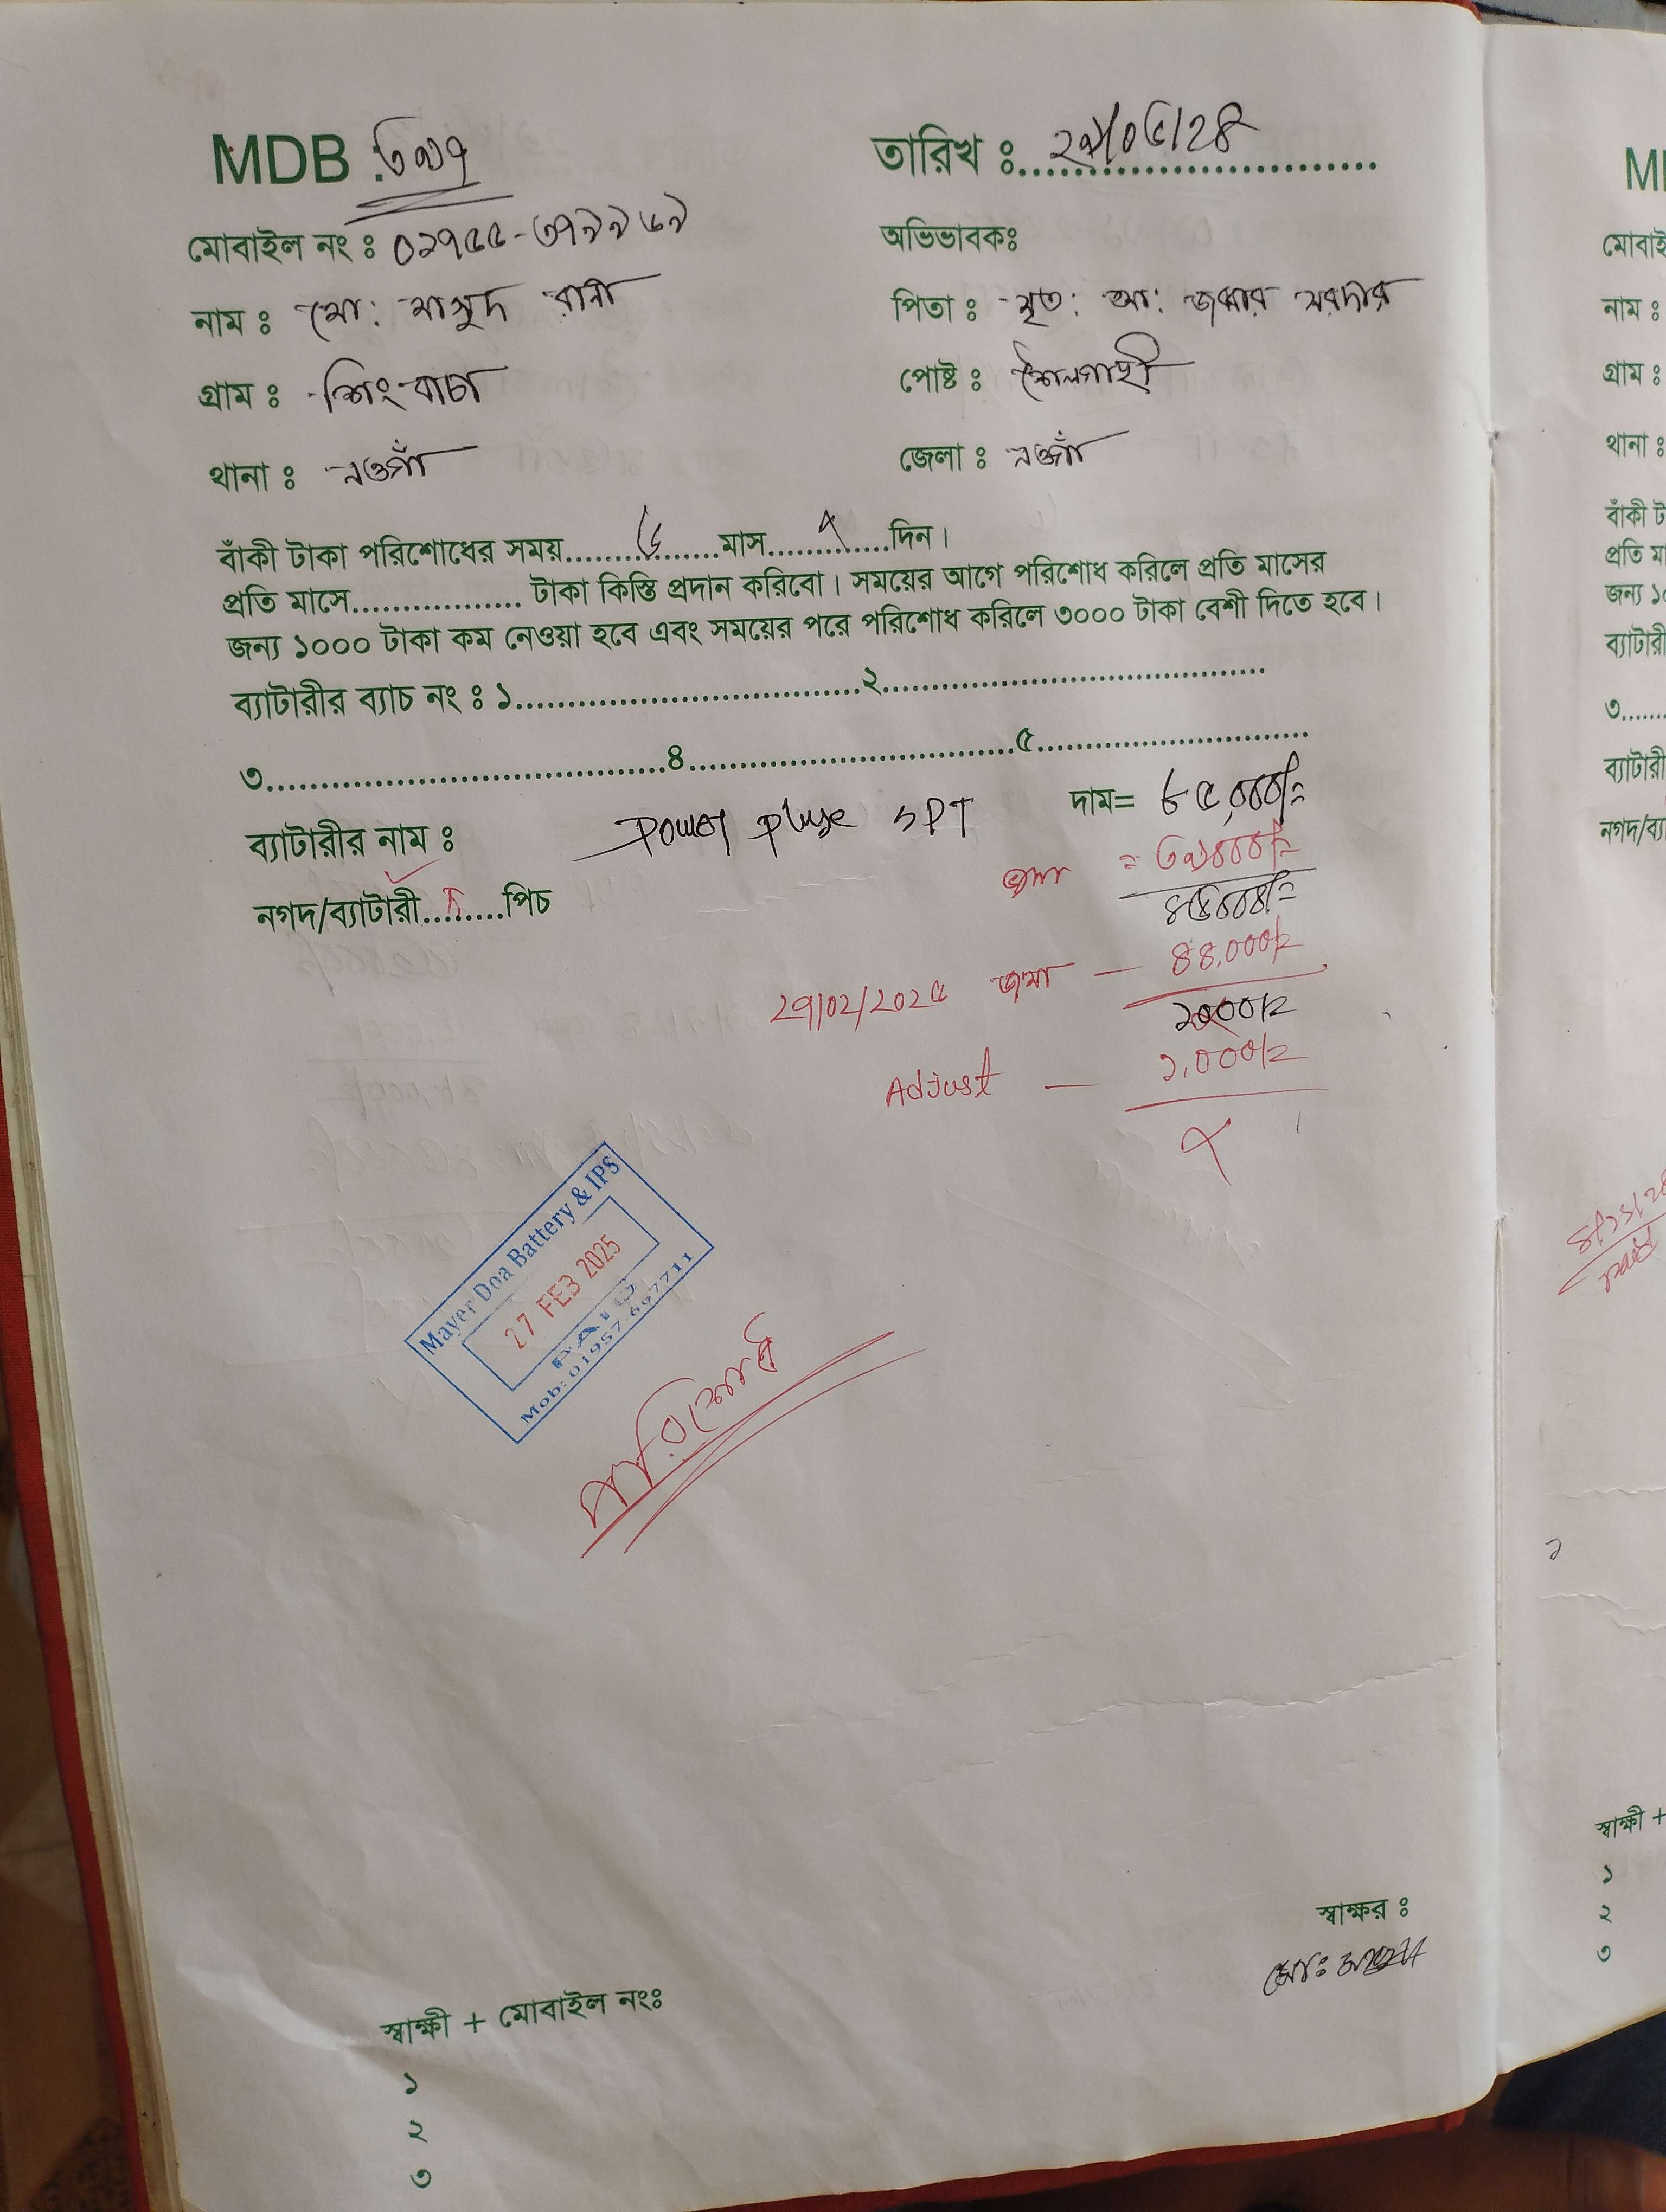 MDB : ৩৯৭
তারিখ ঃ ২৯/০৬/২৪
মোবাইল নং ঃ ০১৭৫৫-৩৭৯৯৬৯
অভিভাবকঃ
নাম ঃ মো: মাসুদ রানা
পিতা ঃ মৃত: আ: জব্বার সরদার
গ্রাম ঃ শিং বাচা
পোষ্ট ঃ শৈলগাছী
থানা ঃ নওগাঁ
জেলা ঃ নওগাঁ
বাঁকী টাকা পরিশোধের সময়.........৬.......মাস.........৭......দিন।
প্রতি মাসে................. টাকা কিস্তি প্রদান করিবো। সময়ের আগে পরিশোধ করিলে প্রতি মাসের
জন্য ১০০০ টাকা কম নেওয়া হবে এবং সময়ের পরে পরিশোধ করিলে ৩০০০ টাকা বেশী দিতে হবে।
ব্যাটারীর ব্যাচ নং ঃ ১..................................২......................................
৩.......................................৪................................৫...........................
ব্যাটারীর নাম ঃ Power pluse ১PT
দাম= ৮৫,০০০/=
জমা = ৩৯০০০/=
নগদ/ব্যাটারী........পিচ
৪৬০০০/=
27/02/202৫ জমা — 88,000/=
২০০০/=
Adjust — ২,০০০/=
Mayer Doa Battery & IPS
27 FEB 2025
PAID
Mob: 01957-667711
পরিশোধ
স্বাক্ষর ঃ
স্বাক্ষী + মোবাইল নংঃ
১
২
৩
মোবাই
নাম ঃ
গ্রাম ঃ
থানা ঃ
বাঁকী ট
প্রতি ম
জন্য ১
ব্যাটারী
৩.......
ব্যাটারী
নগদ/ব্যা
স্বাক্ষী +
১
২
৩